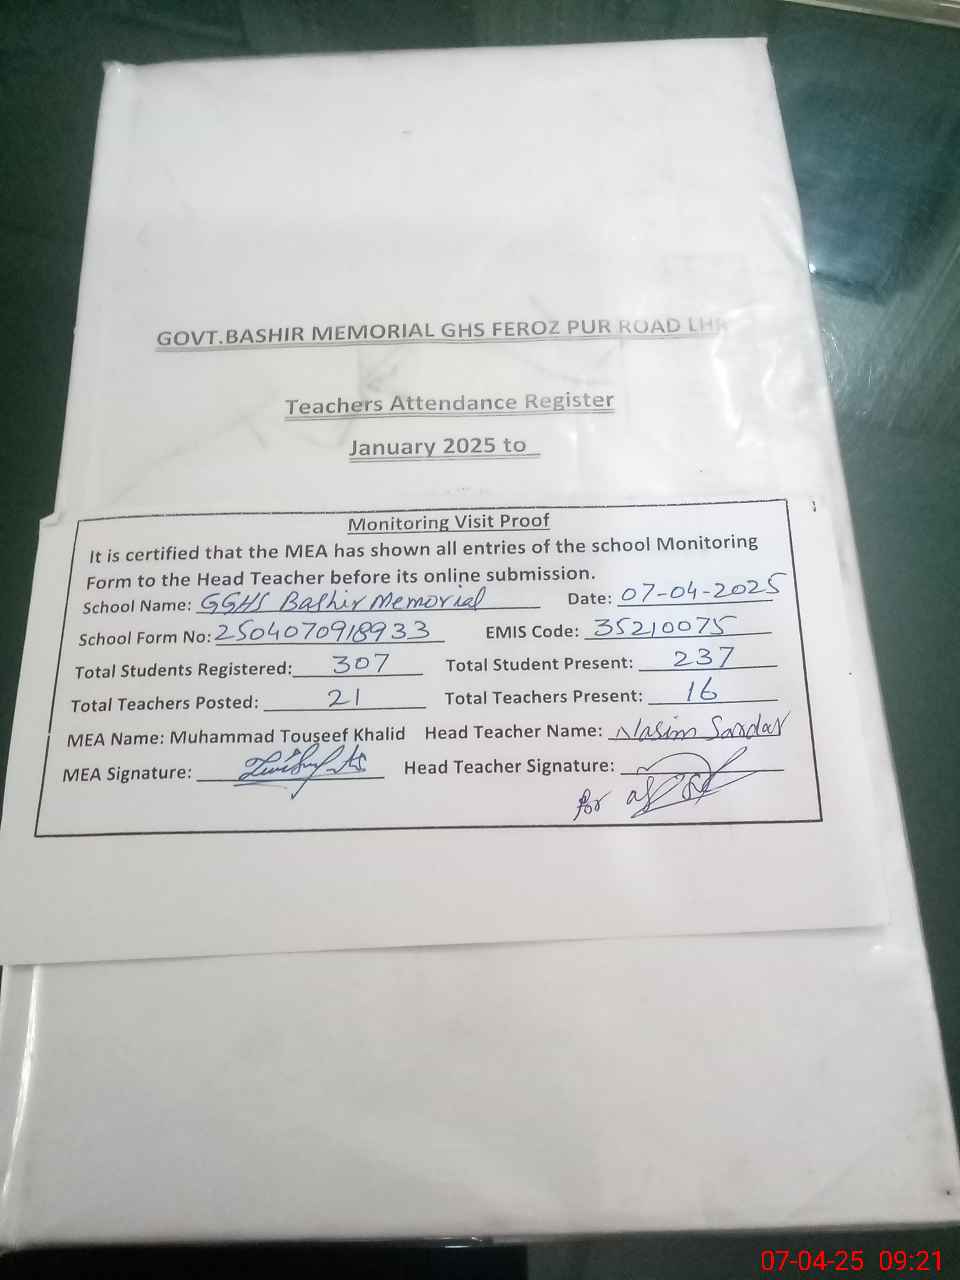 GOVT.BASHIR MEMORIAL GHS FEROZ PUR ROAD LHR
Teachers Attendance Register
January 2025 to
Monitoring Visit Proof
It is certified that the MEA has shown all entries of the school Monitoring
Form to the Head Teacher before its online submission.
School Name: GGHS Bashir Memorial Date: 07-04-2025
School Form No: 2504070918933 EMIS Code: 35210075
Total Students Registered: 307 Total Student Present: 237
Total Teachers Posted: 21 Total Teachers Present: 16
MEA Name: Muhammad Touseef Khalid Head Teacher Name: Nasim Sardar
MEA Signature: Head Teacher Signature:
for
07-04-25 09:21